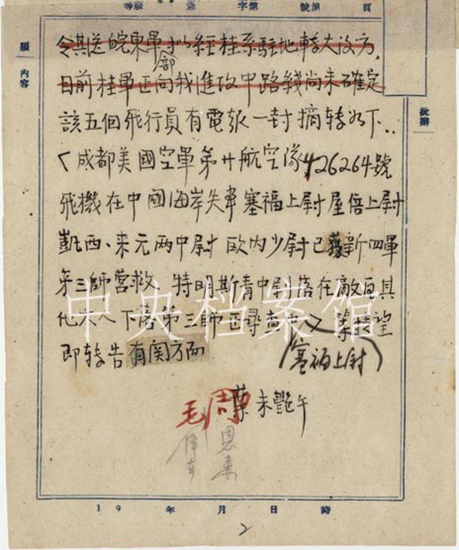 等級 字第 號第 頁
類
內容
批辦
令其送皖東軍部 經桂系駐地轉大後方
目前桂軍正向我進攻中路綫尚未確定
該五個飛行員有電報一封摘轉如下..
〈成都美國空軍第廿航空隊426264號
飛機在中國海岸失事塞福上尉屋倍上尉
凱西、來元兩中尉歐內少尉已蒙新四軍
第三師營救 特明斯青中尉落在敵區其
他 人下落第三師正尋查中〉 特望
即轉告有関方面 (塞福上尉)
葉未艷午
毛 周
澤東 恩來
19 年 月 日 時
2
中央档案馆